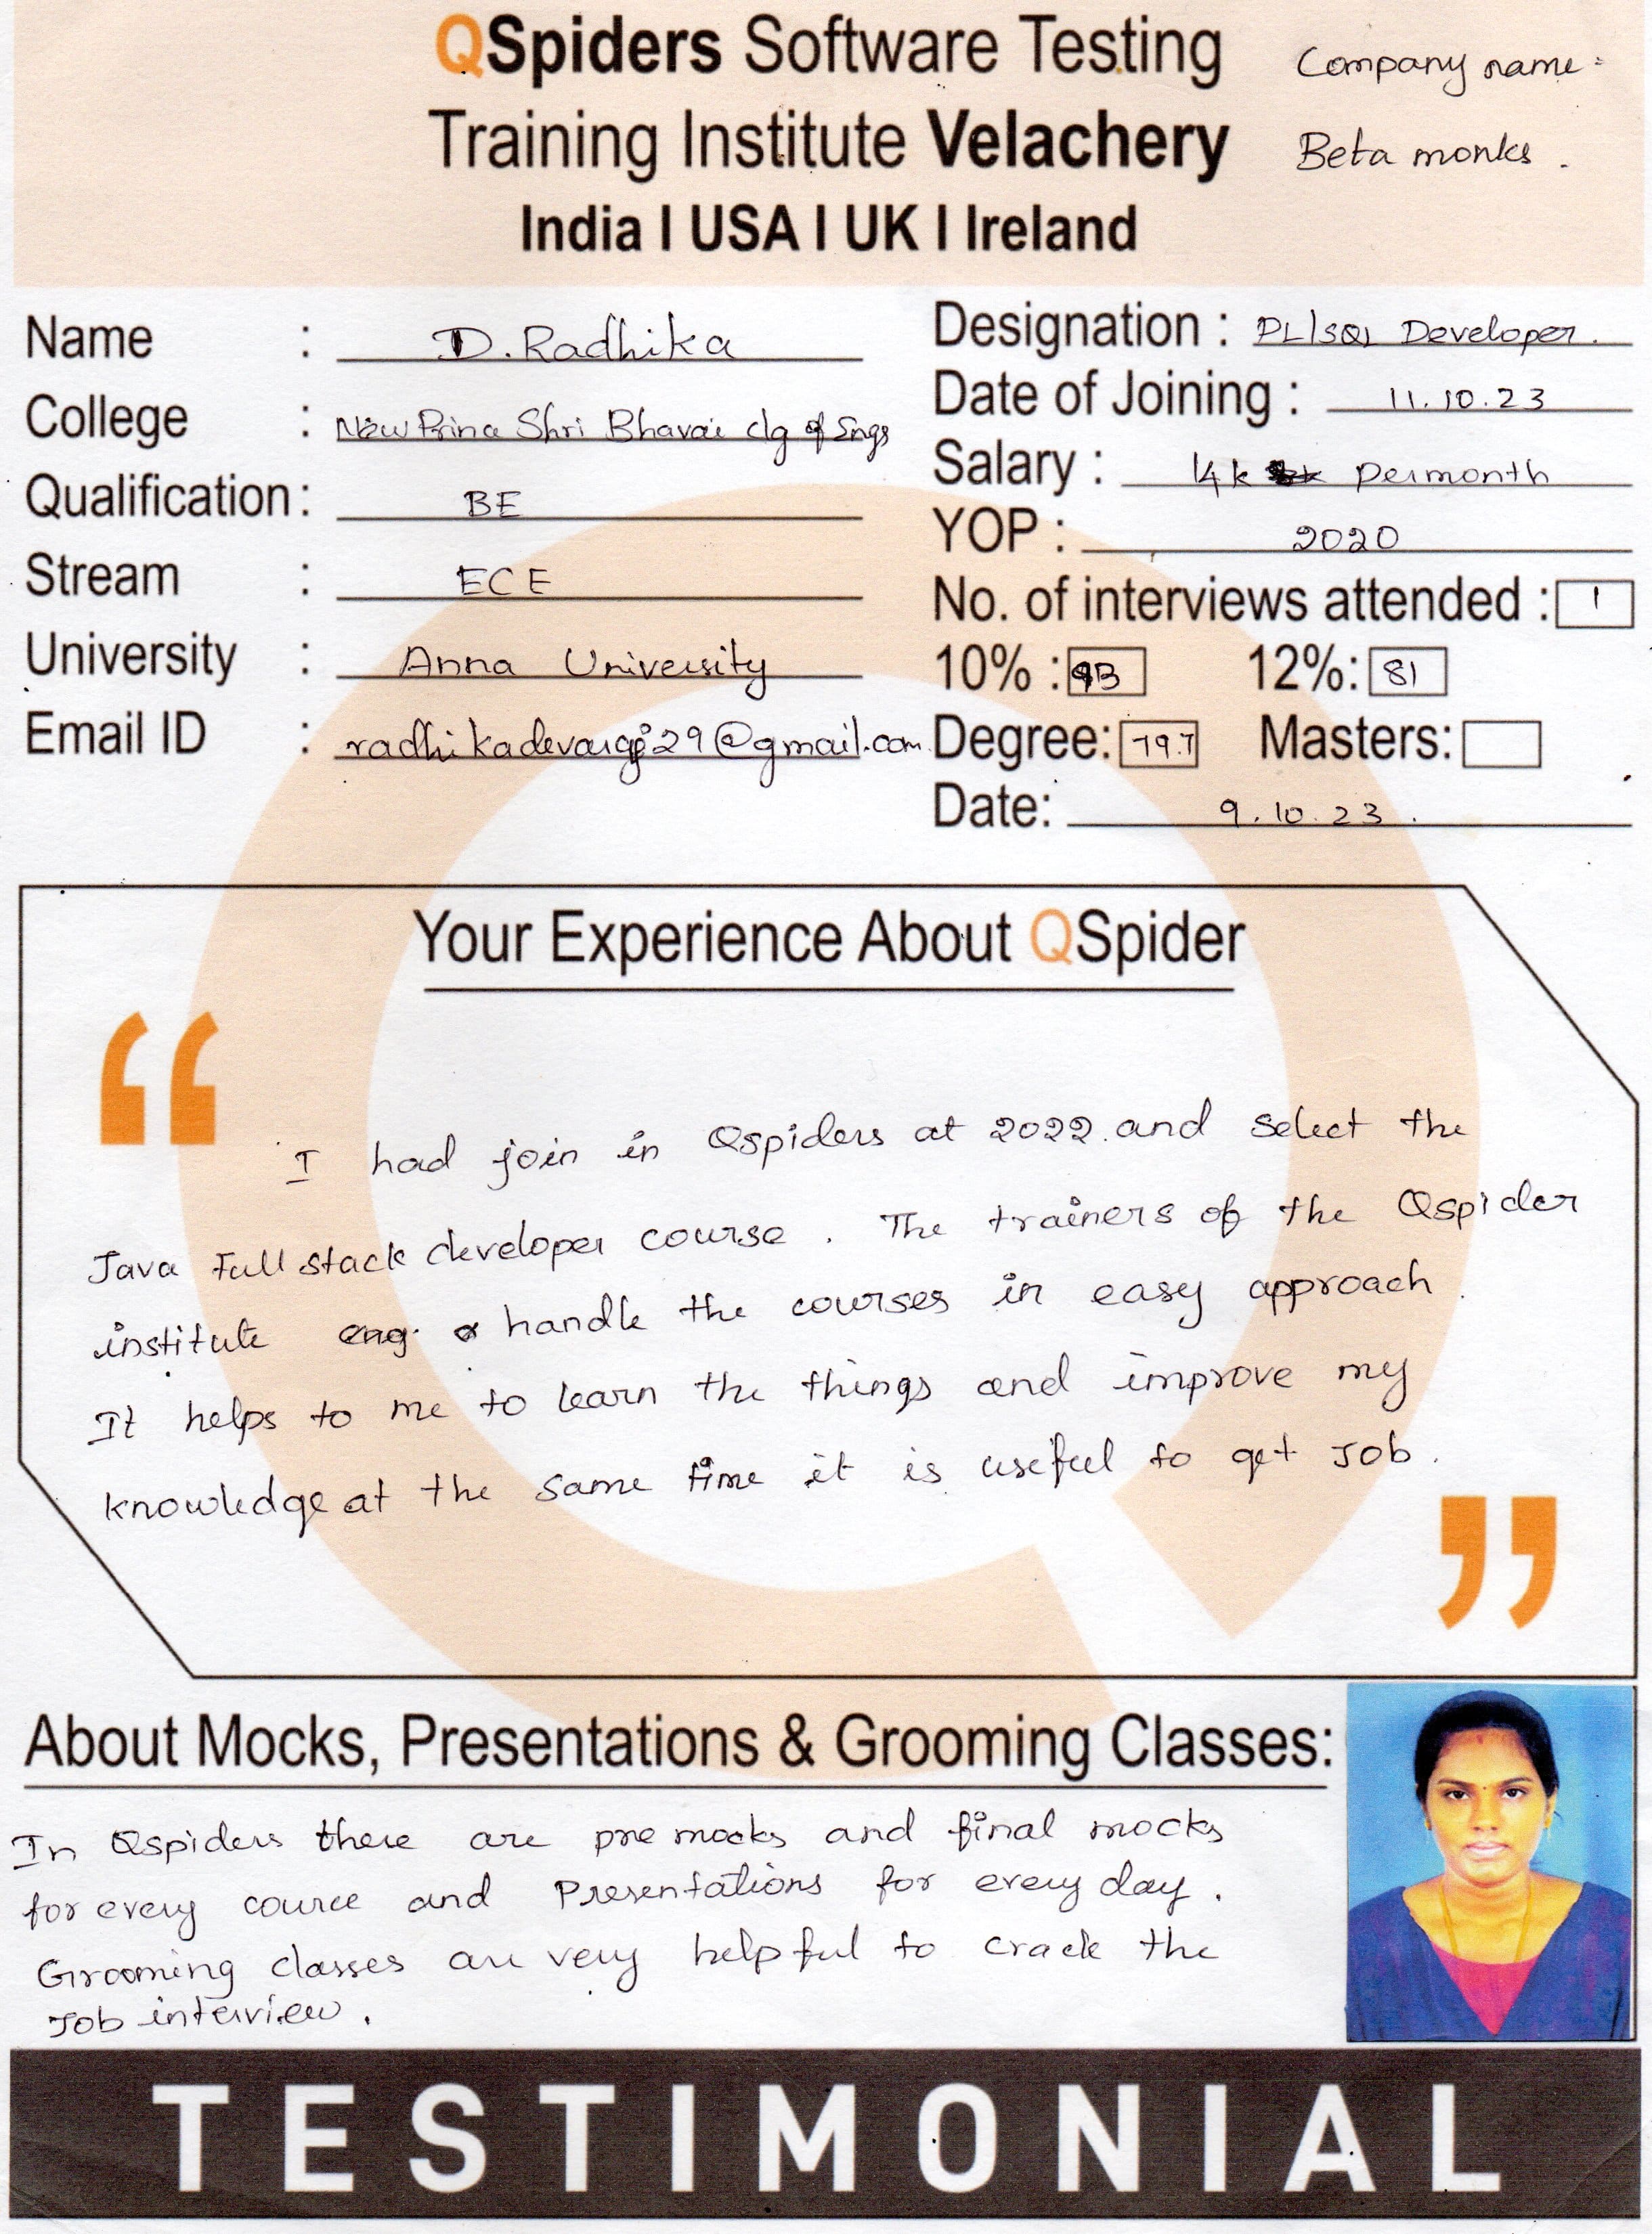 QSpiders Software Testing
Training Institute Velachery
India I USA I UK I Ireland
Company name:
Beta monks.
Name : D. Radhika
College : New Prince Shri Bhavani clg of Engg
Qualification : BE
Stream : ECE
University : Anna University
Email ID :
Designation : PL/SQL Developer.
Date of Joining : 11.10.23
Salary : 14k permonth
YOP : 2020
No. of interviews attended : 1
10% : 93 12%: 81
Degree: 79.7 Masters:
Date: 9.10.23.
Your Experience About QSpider
“
I had join in Qspiders at 2022. and select the
Java Full stack developer course. The trainers of the Qspider
institute handle the courses in easy approach.
It helps to me to learn the things and improve my
knowledge at the same time it is useful to get Job.
”
About Mocks, Presentations & Grooming Classes:
In Qspiders there are pre mocks and final mocks
for every cource and Presentations for every day.
Grooming classes are very helpful to crack the
Job interview.
TESTIMONIAL